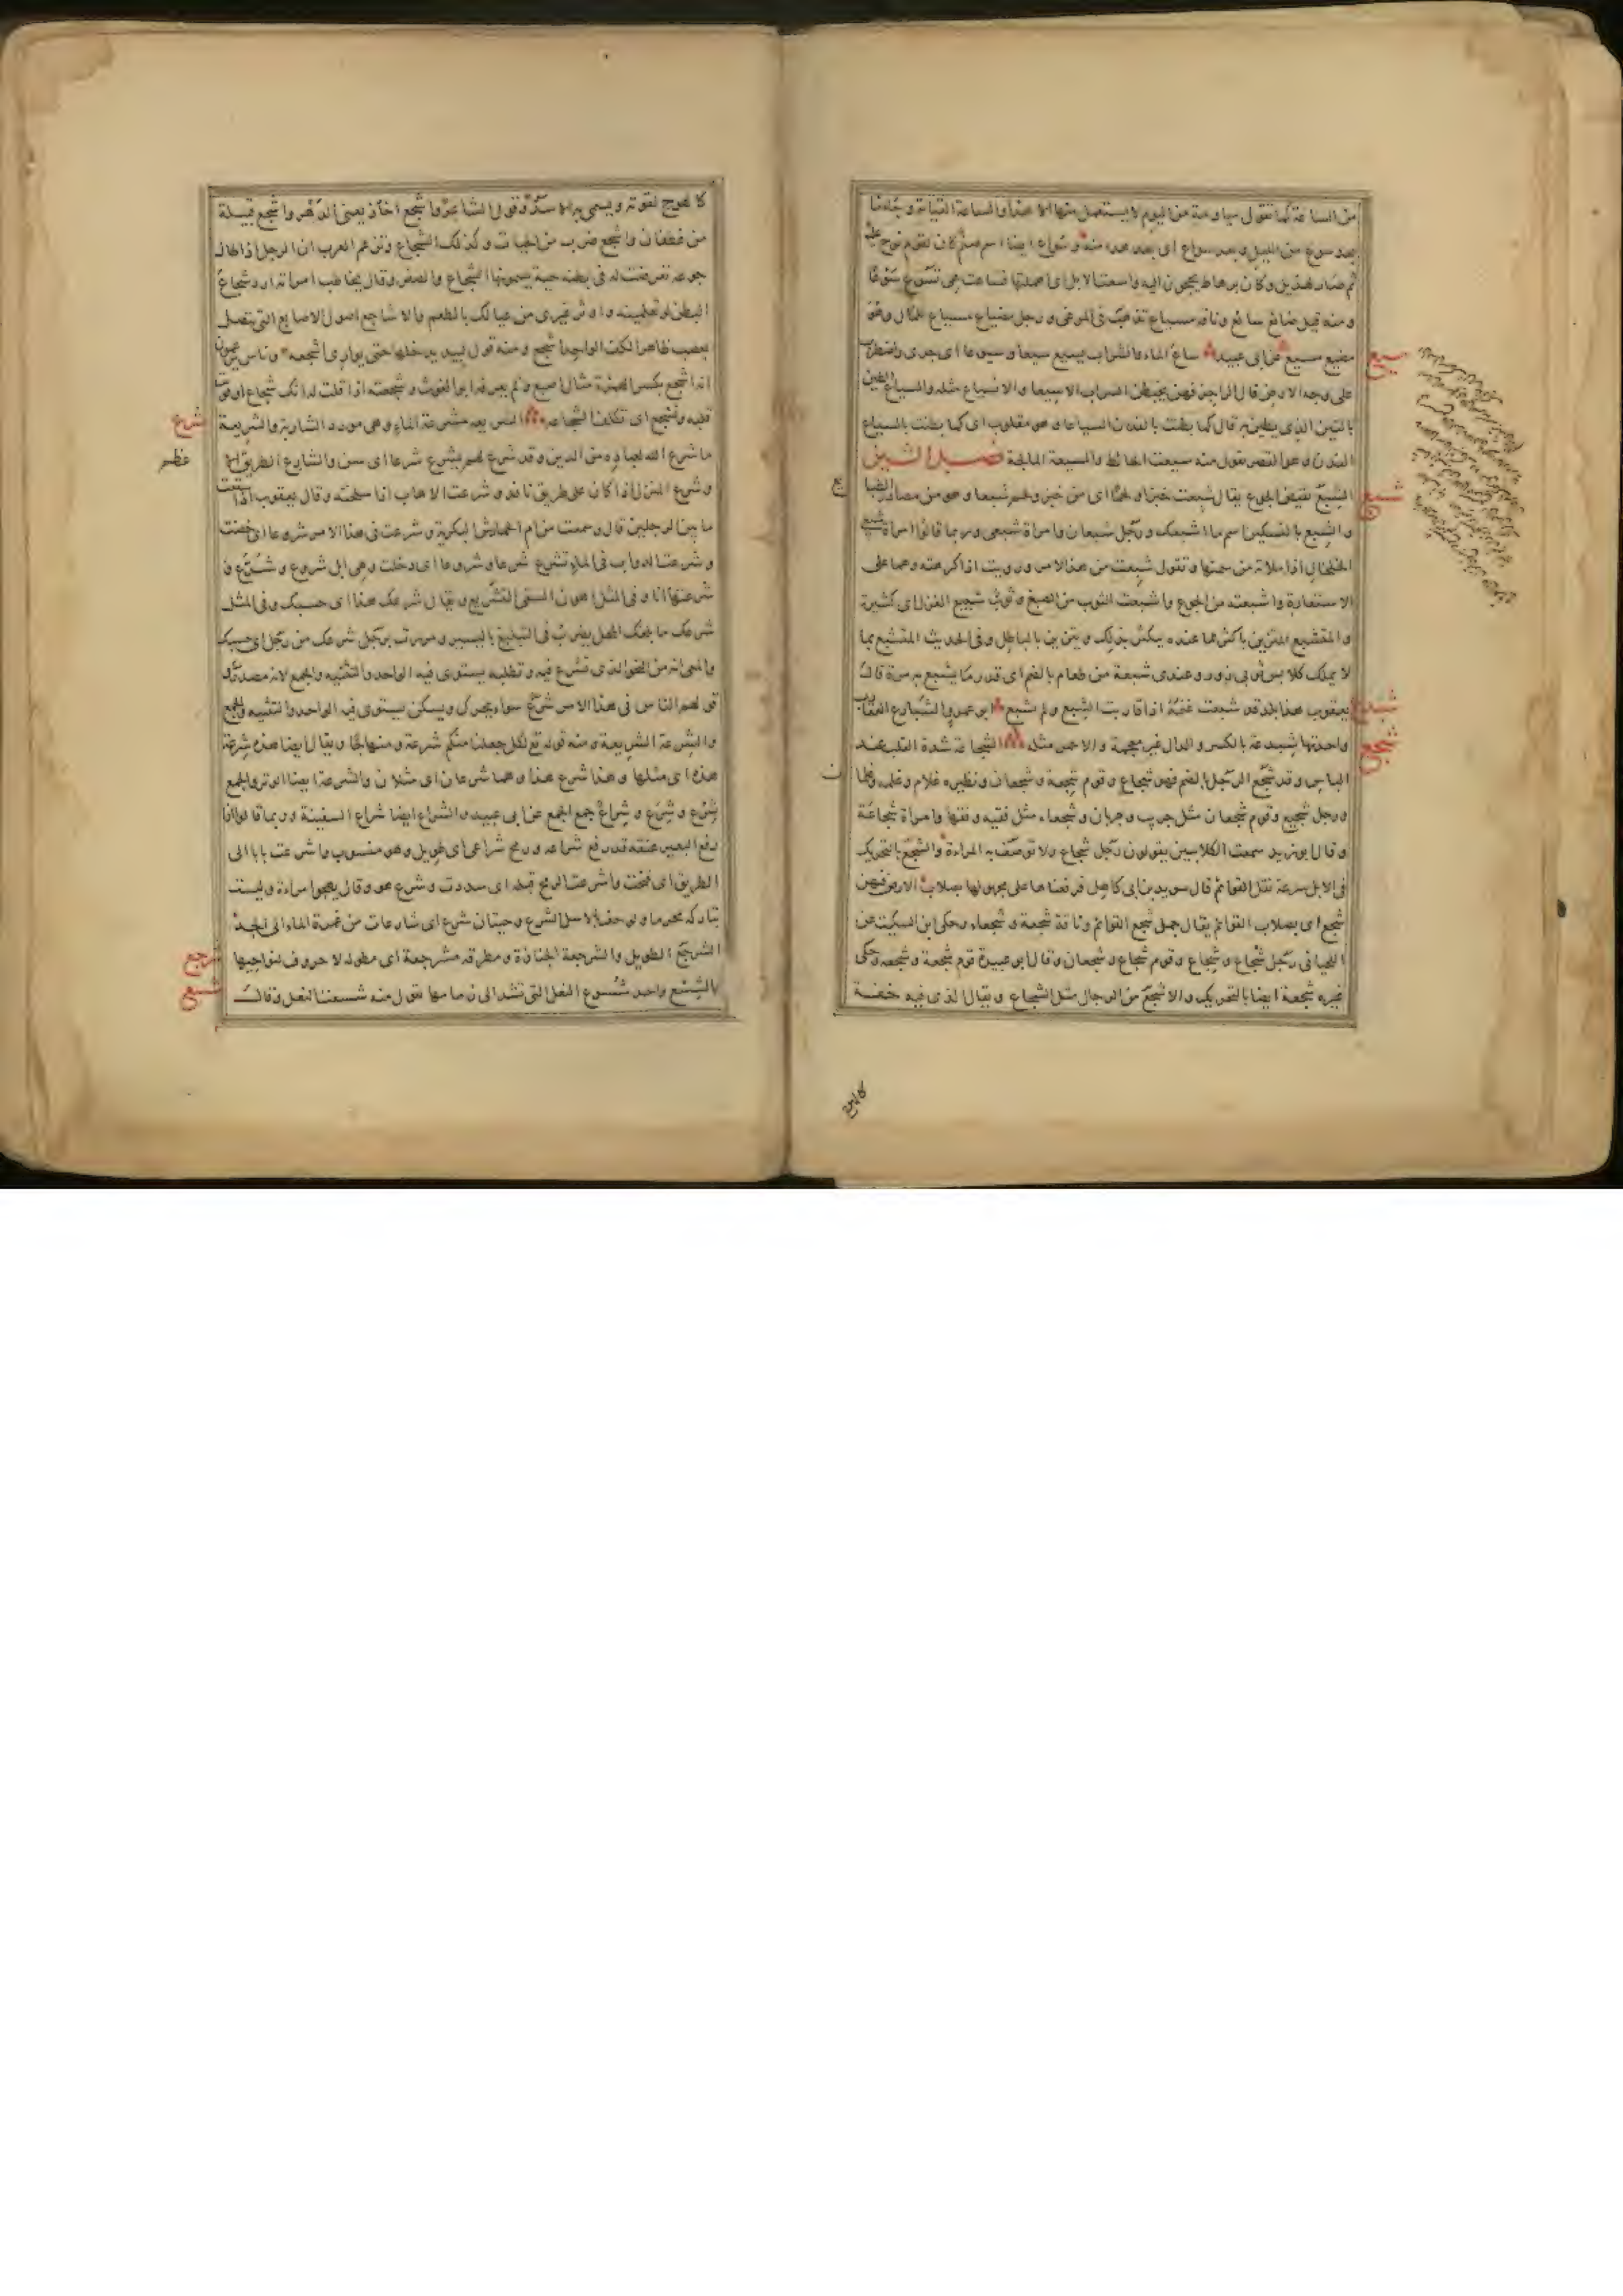 من الساعة كما تقول مياومة من اليوم لا يستعمل منها الا هذا والساعة القيامة وجاءنا
بعد سوع من الليل وبعد سواع اى بعد هدء منه وسواع ايضا اسم صنم كان لقوم نوح عليه
ثم صار لهذيل وكان برهاط يحجون اليه واسعت الابل اى اهملتها فساعت هى تسوع سوعا
ومنه قيل ضائع سائع وناقة مسياع تذهب فى المرعى ورجل مضياع مسياع للمال وهو
مضيع مسيع عن ابى عبيد ساع الماء والشراب يسيع سيعا وسيوعا اى جرى واضطرب
سيع
على وجه الارض قال الراجز فهن يخبطن السراب الاسيعا والانسياع مثله والسياع الطين
بالتبن الذى يطين به قال كما بطنت بالفدن السياعا وهو مقلوب اى كما بطنت بالسياع
الفدن وهو القصر تقول منه سيعت الحائط والمسيعة المالجة فصل الشين
الشبع نقيض الجوع يقال شبعت خبزا ولحما اى من خبز ولحم شبعا وهو من مصادر الطبايع
شبع
والشبع بالتسكين اسم ما اشبعك ورجل شبعان وامراة شبعى وربما قالوا امراة شبعى
الخلخال اذا ملاته من سمنها وتقول شبعت من هذا الامر ورويت اذا كرهته وهما على
الاستعارة واشبعته من الجوع واشبعت الثوب من الصبغ وثوب شبيع الغزل اى كثيره
والمتشبع المتزين باكثر مما عنده يتكثر بذلك ويتزين بالباطل وفى الحديث المتشبع بما
لا يملك كلابس ثوبى زور وعندى شبعة من طعام بالضم اى قدر ما يشبع به مرة قال
يعقوب هذا بلد قد شبعت غنمه اذا قاربت الشبع ولم تشبع ابو عمرو الشبادع العقارب
شبدع
واحدتها شبدعة بالكسر والدال غير معجمة والاحمر مثله الشجاعة شدة القلب عند
شجع
الباس وقد شجع الرجل بالضم فهو شجاع وقوم شجعة وشجعان ونظيره غلام وغلمة وغلمان
ورجل شجيع وقوم شجعان مثل جريب وجربان وشجعاء مثل فقيه وفقهاء وامراة شجاعة
وقال ابو زيد سمعت الكلابيين يقولون رجل شجاع ولا توصف به المراءة والشجع بالتحريك
فى الابل سرعة نقل القوائم قال سويد بن ابى كاهل فركبناها على مجهولها بصلاب الارض فيهن
شجع اى بصلاب القوائم يقال جمل شجع القوائم وناقة شجعة وشجعاء وحكى ابن السكيت عن
اللحيانى رجل شجاع وشجاع وقوم شجاع وشجعان وقال ابو عبيدة قوم شجعة وشجعة وحكى
غيره شجعة ايضا بالتحريك والاشجع من الرجال مثل الشجاع ويقال الذى فيه خفة
كالهوج لقوته ويسمى به الاسد وقول الشاعر واشجع اخاذ يعنى الدهر واشجع قبيلة
من غطفان واشجع ضرب من الحيات وكذلك الشجاع وتزعم العرب ان الرجل اذا طال
جوعه تعرضت له فى بطنه حية يسمونها الشجاع والصفر وقال يخاطب امراته ارد شجاع
البطن لو تعلمينه واوثر غيرى من عيالك بالطعم والاشاجع اصول الاصابع التى تتصل
بعصب ظاهر الكف الواحد اشجع ومنه قول لبيد يدخلها حتى يوارى اشجعه وناس يزعمون
انه اشجع بكسر الهمزة مثال اصبع ولم يعرفه ابو الغوث وشجعته اذا قلت له انك شجاع او قويت
قلبه وتشجع اى تكلف الشجاعة الشريعة مشرعة الماء وهى مورد الشاربة والشريعة
شرع
ما شرع الله لعباده من الدين وقد شرع لهم يشرع شرعا اى سن والشارع الطريق الا
عظم
وشرع المنزل اذا كان على طريق نافذ وشرعت الاهاب اذا سلخته وقال يعقوب اذا شققت
ما بين الرجلين قال وسمعت من ام الحمارس البكرية وشرعت فى هذا الامر شروعا اى خضت
وشرعت الدواب فى الماء تشرع شرعا وشروعا اى دخلت وهى ابل شروع وشرع و
شرعتها انا وفى المثل اهون السقى التشريع ويقال شرعك هذا اى حسبك وفى المثل
شرعك ما بلغك المحل يضرب فى التبليغ باليسير ومررت برجل شرعك من رجل اى حسبك
والمعنى انه من النحو الذى تشرع فيه وتطلبه يستوى فيه الواحد والتثنيه والجمع لانه مصدر و
قولهم الناس فى هذا الامر شرع سواء يحرك ويسكن يستوى فيه الواحد والتثنيه والجمع
والشرعة الشريعة ومنه قوله تع لكل جعلنا منكم شرعة ومنهاجا ويقال ايضا هذه شرعة
هذه اى مثلها وهذا شرع هذا وهما شرعان اى مثلان والشرعة ايضا الوتر والجمع
شرع وشرع وشراع جمع الجمع عن ابى عبيد والشراع ايضا شراع السفينة وربما قالوا اذا
رفع البعير عنقه قد رفع شراعه ورمح شراعى اى طويل وهو منسوب واشرعت بابا الى
الطريق اى فتحت واشرعت الرمح قبله اى سددت وشرع هو وقال يهجو امراءة وليست
بتاركة محرما ولو حف بالاسل الشرع وحيتان شرع اى شارعات من غمرة الماء الى الجد
الشرجع الطويل والشرجعة الجنازة ومطرقه مشرجعة اى مطوله لا حروف لنواحيها
شرجع
الشسع واحد شسوع النعل التى تشد الى زمامها تقول منه شسعت النعل وقال
شسع